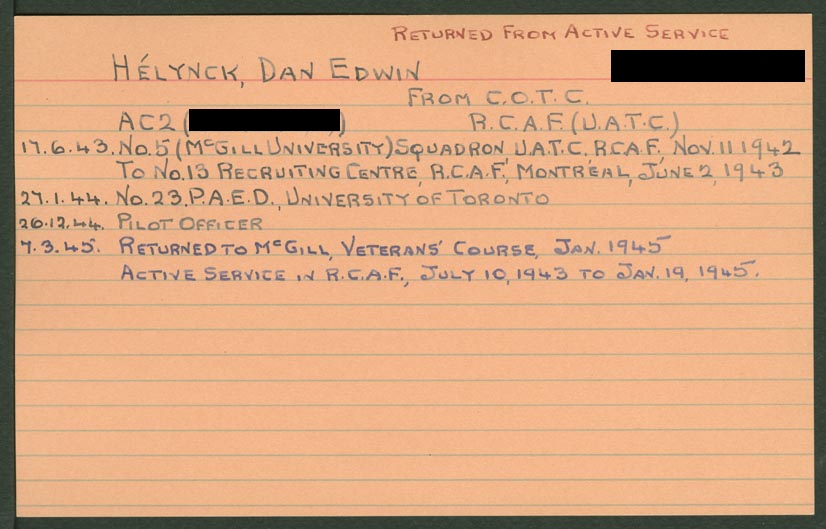 RETURNED FROM ACTIVE SERVICE
HÉLYNCK, DAN EDWIN
FROM C.O.T.C.
AC2 ( ) R.C.A.F. (U.A.T.C.)
17.6.43. No. 5 (McGILL UNIVERSITY) SQUADRON U.A.T.C. R.C.A.F., NOV. 11 1942
TO No. 13 RECRUITING CENTRE, R.C.A.F., MONTRÉAL, JUNE 2, 1943
27.1.44. No. 23 P.A.E.D., UNIVERSITY OF TORONTO
26.12.44. PILOT OFFICER
7.3.45. RETURNED TO McGILL, VETERANS' COURSE, JAN. 1945
ACTIVE SERVICE IN R.C.A.F., JULY 10, 1943 TO JAN. 19, 1945.